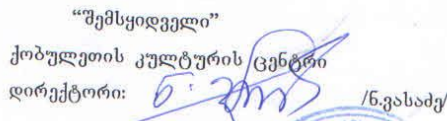 “შემსყიდველი”
ქობულეთის კულტურის ცენტრი
დირექტორი: /ნ.ვასაძე/